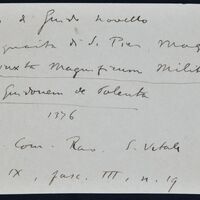 di Guido Novello
di S. Pier Mag
iuxta Magnificum Milit
Guidonem de Polenta
1376
Com. Rav. S. Vitale
IX, fasc. III, n. 19